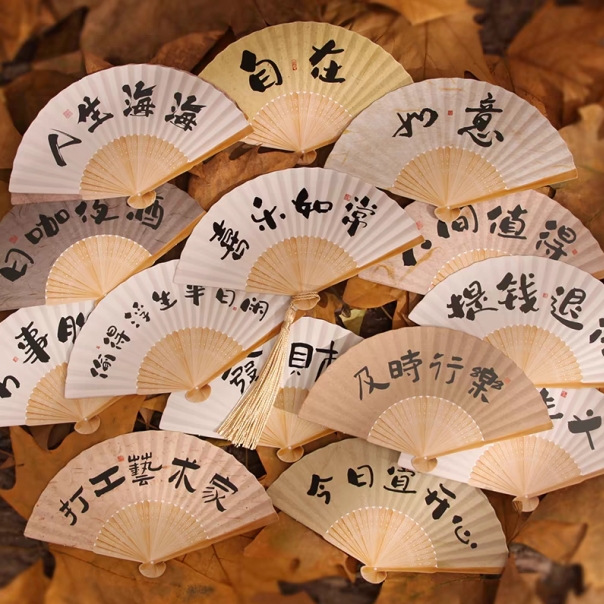 自在
人生海海
如意
日咖夜酒
喜乐如常
人间值得
偷得浮生半日闲
提钱退
事
發財
及時行樂
打工藝术家
今日宜开心